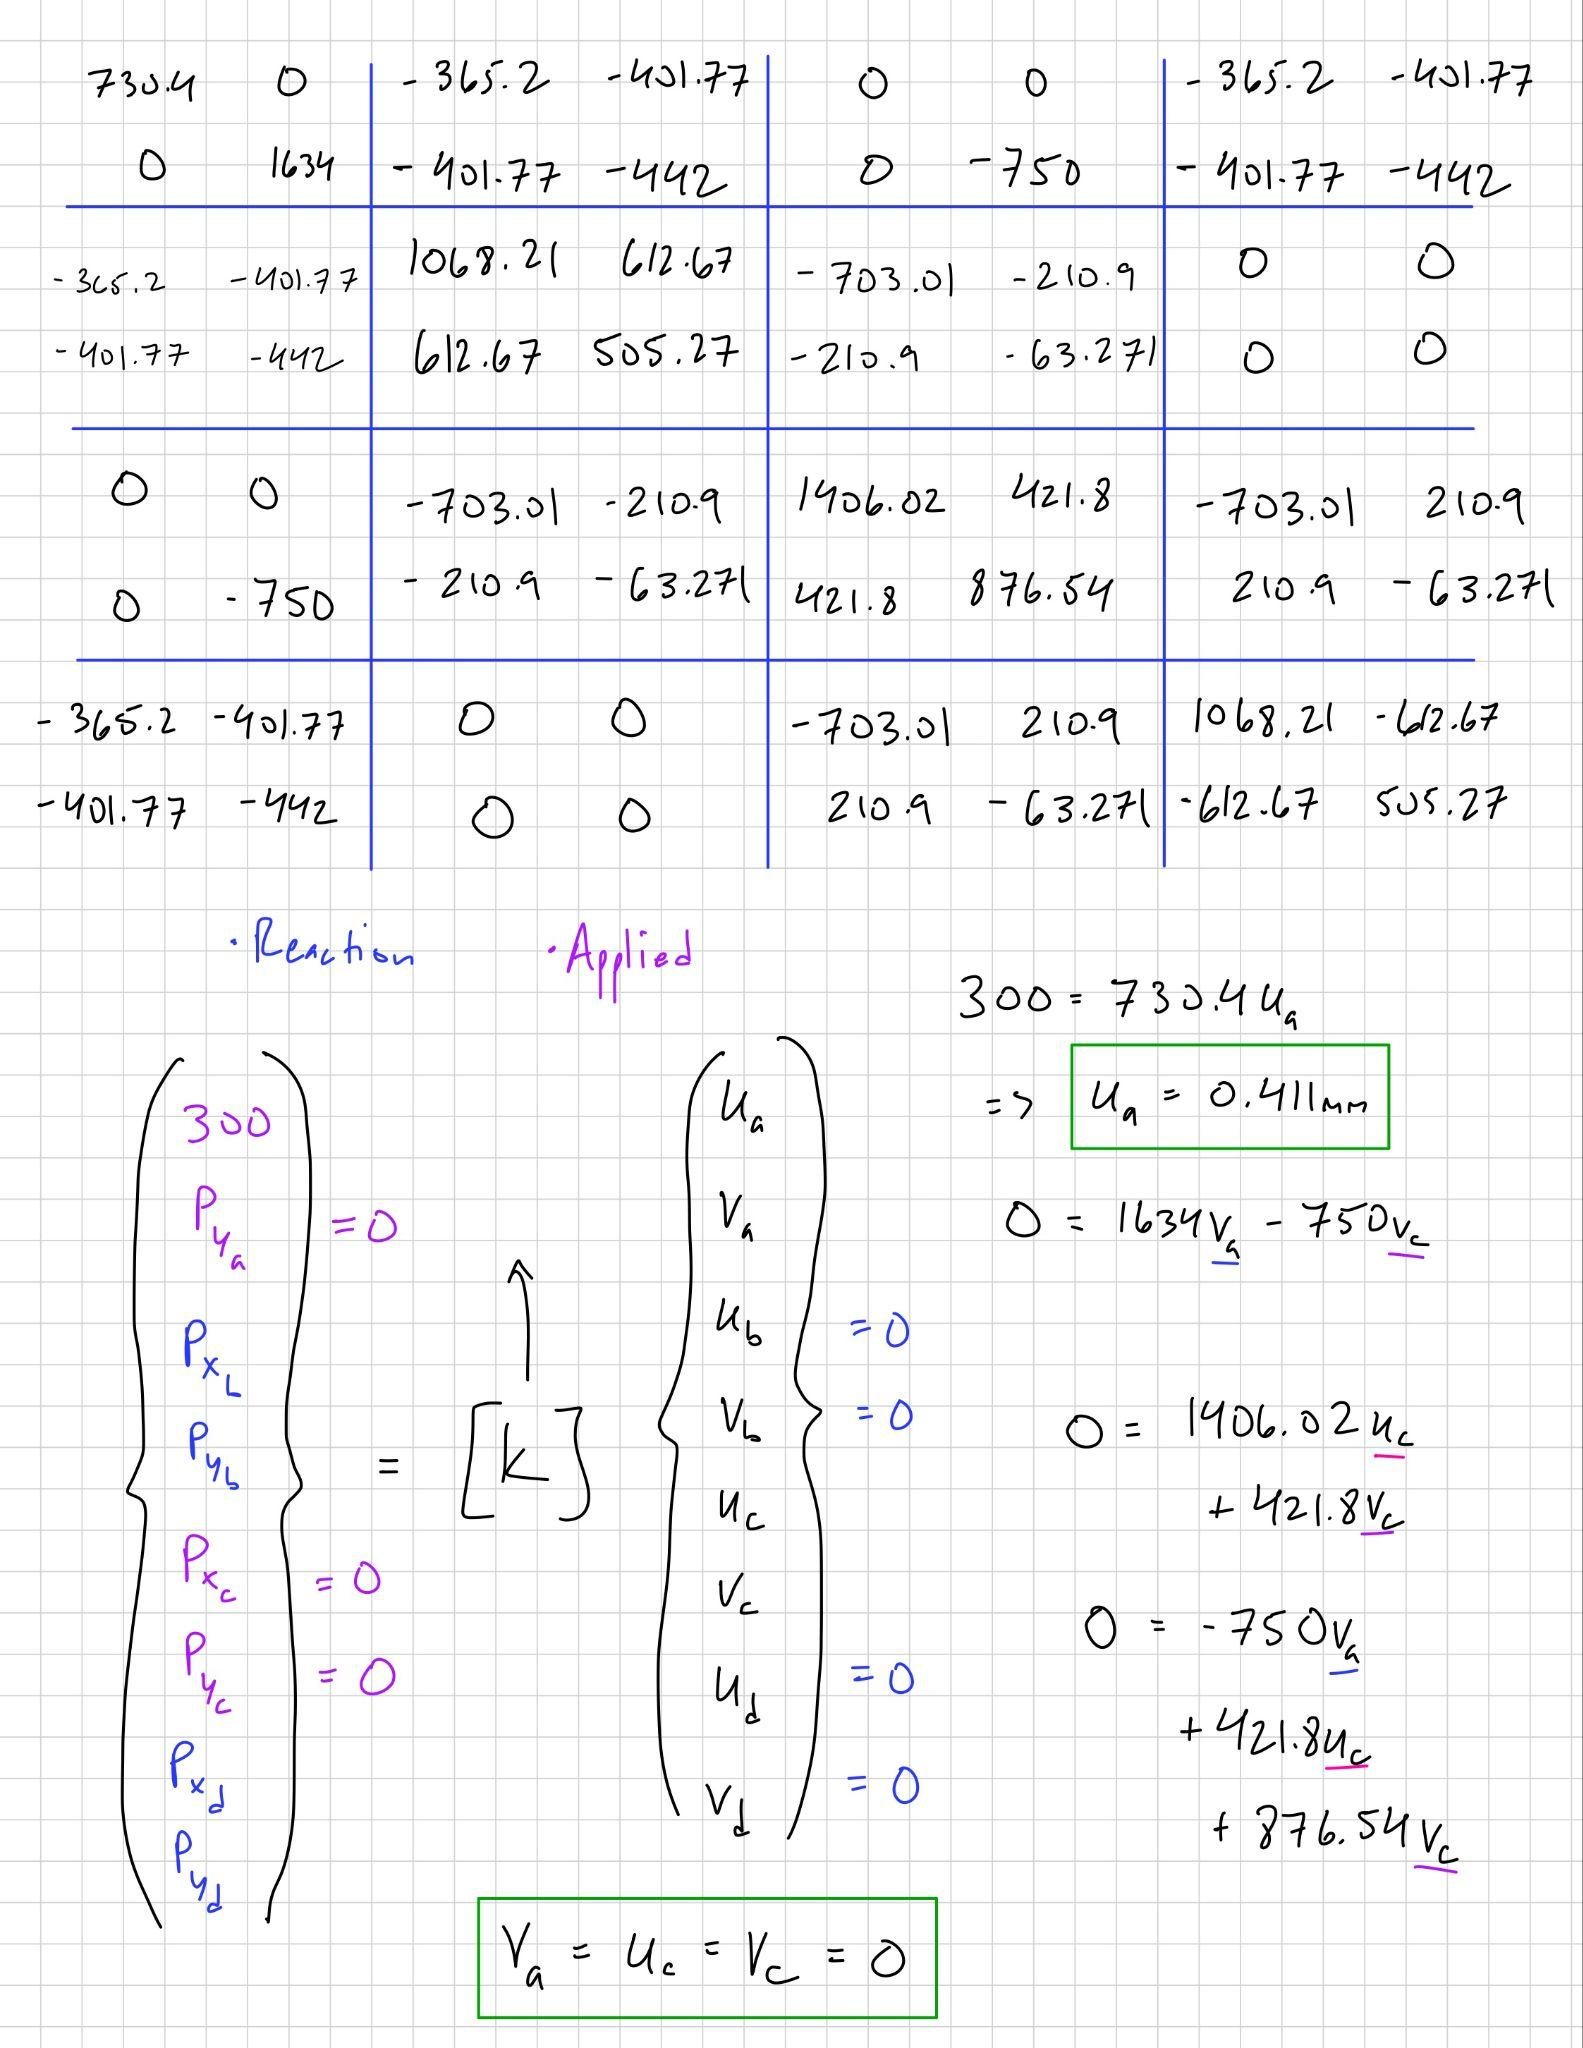 730.4 0 -365.2 -401.77 0 0 -365.2 -401.77
0 1634 -401.77 -442 0 -750 -401.77 -442
-365.2 -401.77 1068.21 612.67 -703.01 -210.9 0 0
-401.77 -442 612.67 505.27 -210.9 -63.271 0 0
0 0 -703.01 -210.9 1406.02 421.8 -703.01 210.9
0 -750 -210.9 -63.271 421.8 876.54 210.9 -63.271
-365.2 -401.77 0 0 -703.01 210.9 1068.21 -612.67
-401.77 -442 0 0 210.9 -63.271 -612.67 505.27
· Reaction · Applied
300 = 730.4 u_a
=> u_a = 0.411mm
300
P_y_a = 0
P_x_b
P_y_b
P_x_c = 0
P_y_c = 0
P_x_d
P_y_d
= [k]
↑
u_a
v_a
u_b = 0
v_b = 0
u_c
v_c
u_d = 0
v_d = 0
0 = 1634v_a - 750v_c
0 = 1406.02 u_c
+ 421.8v_c
0 = -750v_a
+ 421.8u_c
+ 876.54v_c
V_a = u_c = V_c = 0